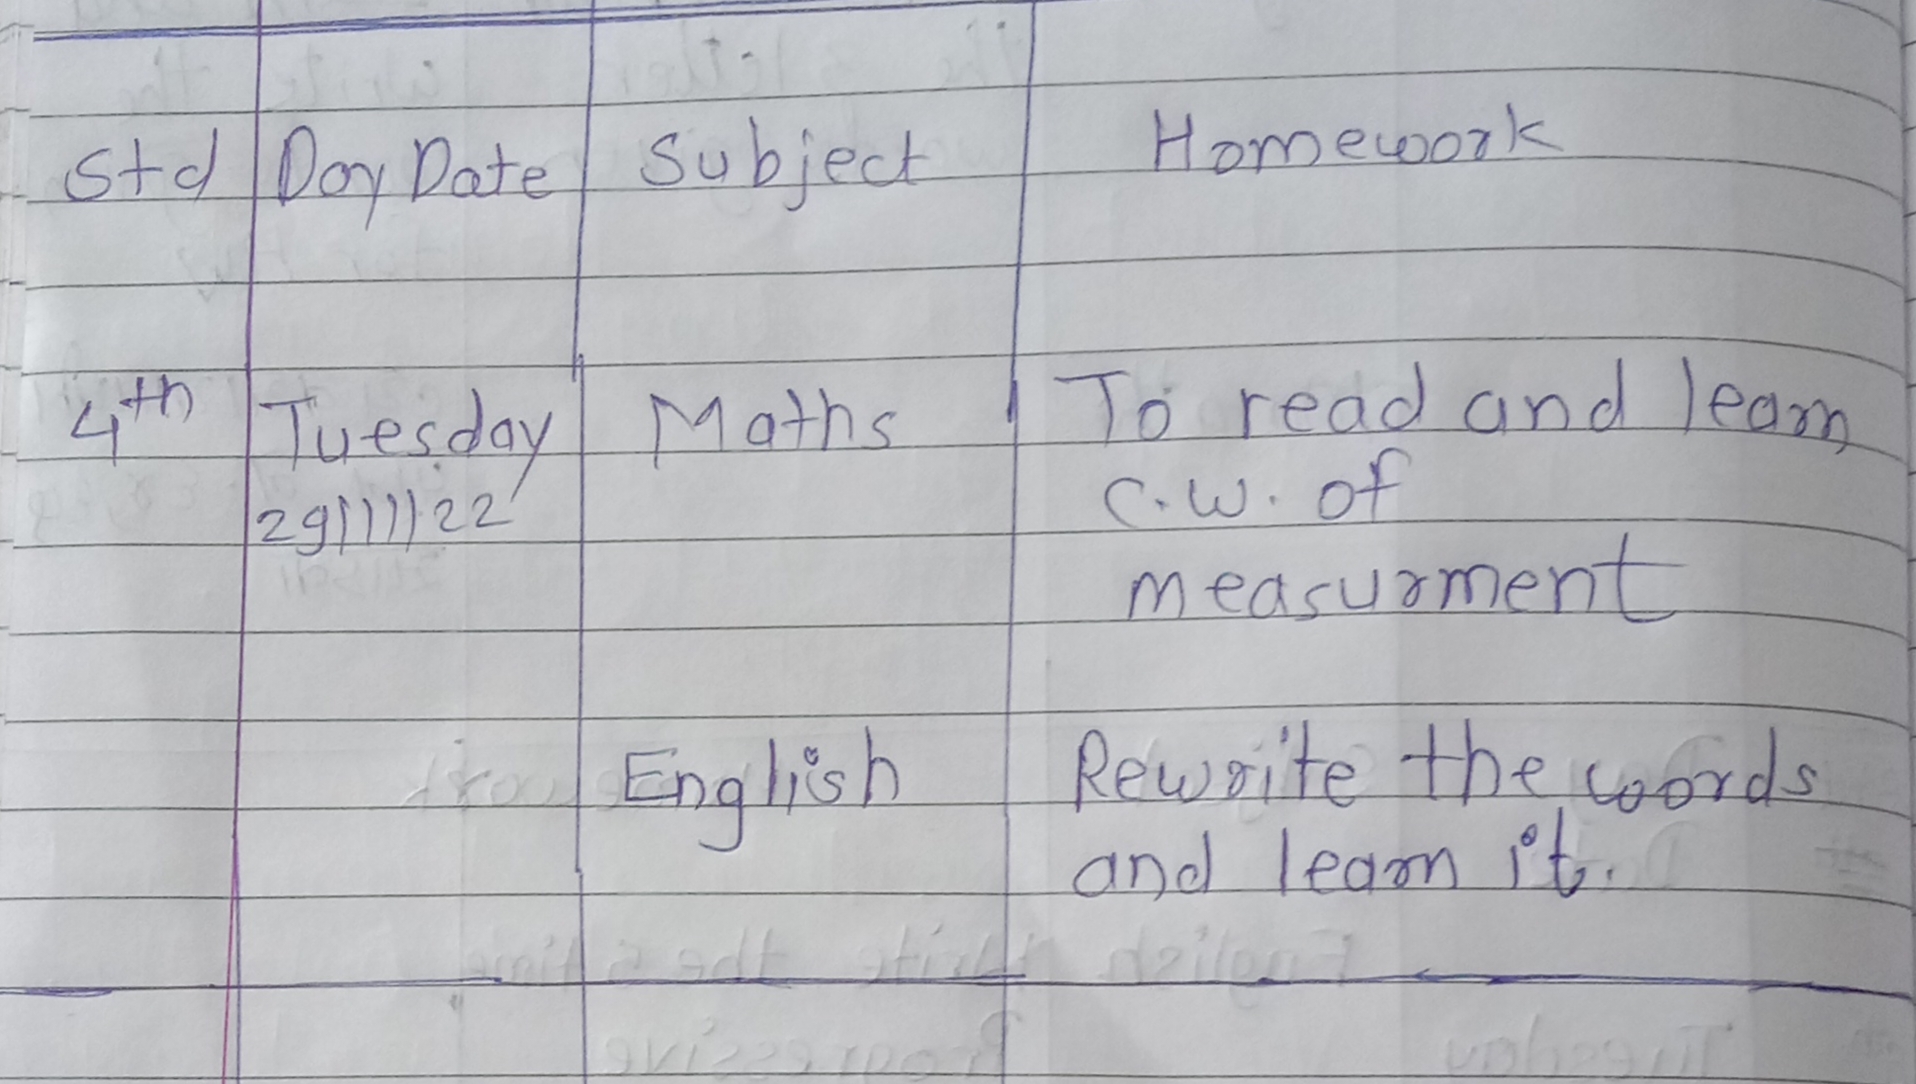 Std Day Date Subject Homework
4th Tuesday Maths To read and learn
29/11/22 c.w. of
measurment
English Rewrite the words
and learn it.